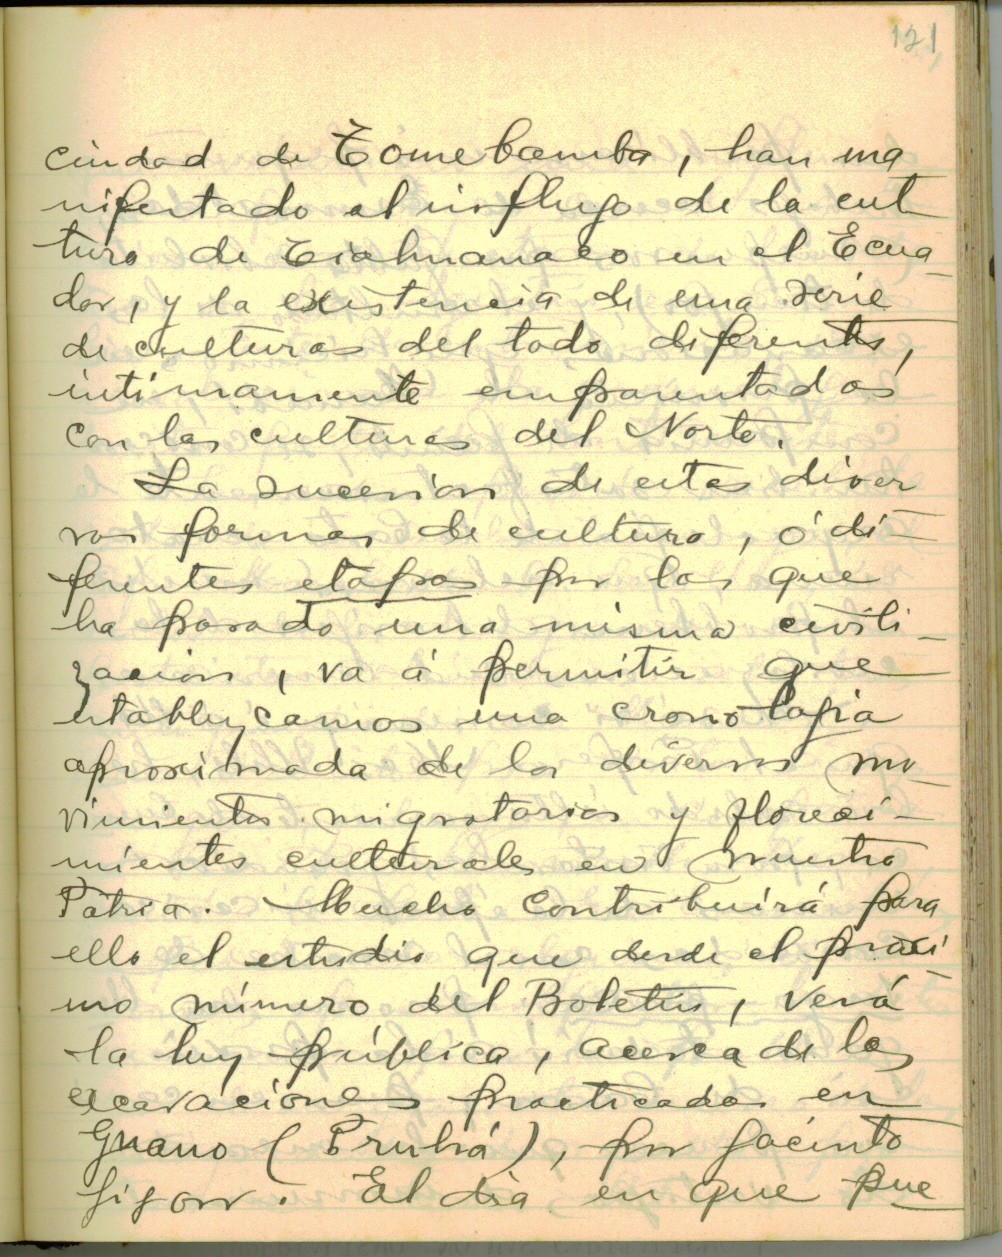 121
ciudad de Tomebamba, han ma
nifestado el influjo de la cul
tura de Tiahuanaco en el Ecua-
dor, y la existencia de una serie
de culturas del todo diferentes,
intimamente emparentados
con las culturas del Norte.
La sucesion de estas diver
sas formas de cultura, ó di-
ferentes etapas por las que
ha pasado una misma civili-
zacion, va á permitir que
establezcamos una cronología
aproximada de los diversos mo-
vimientos migratorios y floreci-
mientos culturales en nuestra
Pátria. Mucho contribuirá para
ello el estudio que desde el proxi-
mo número del Boletin, verá
la luz pública, acerca de las
excavaciones practicadas en
Guano (       ), por Jacinto
Jijon. El dia en que pue